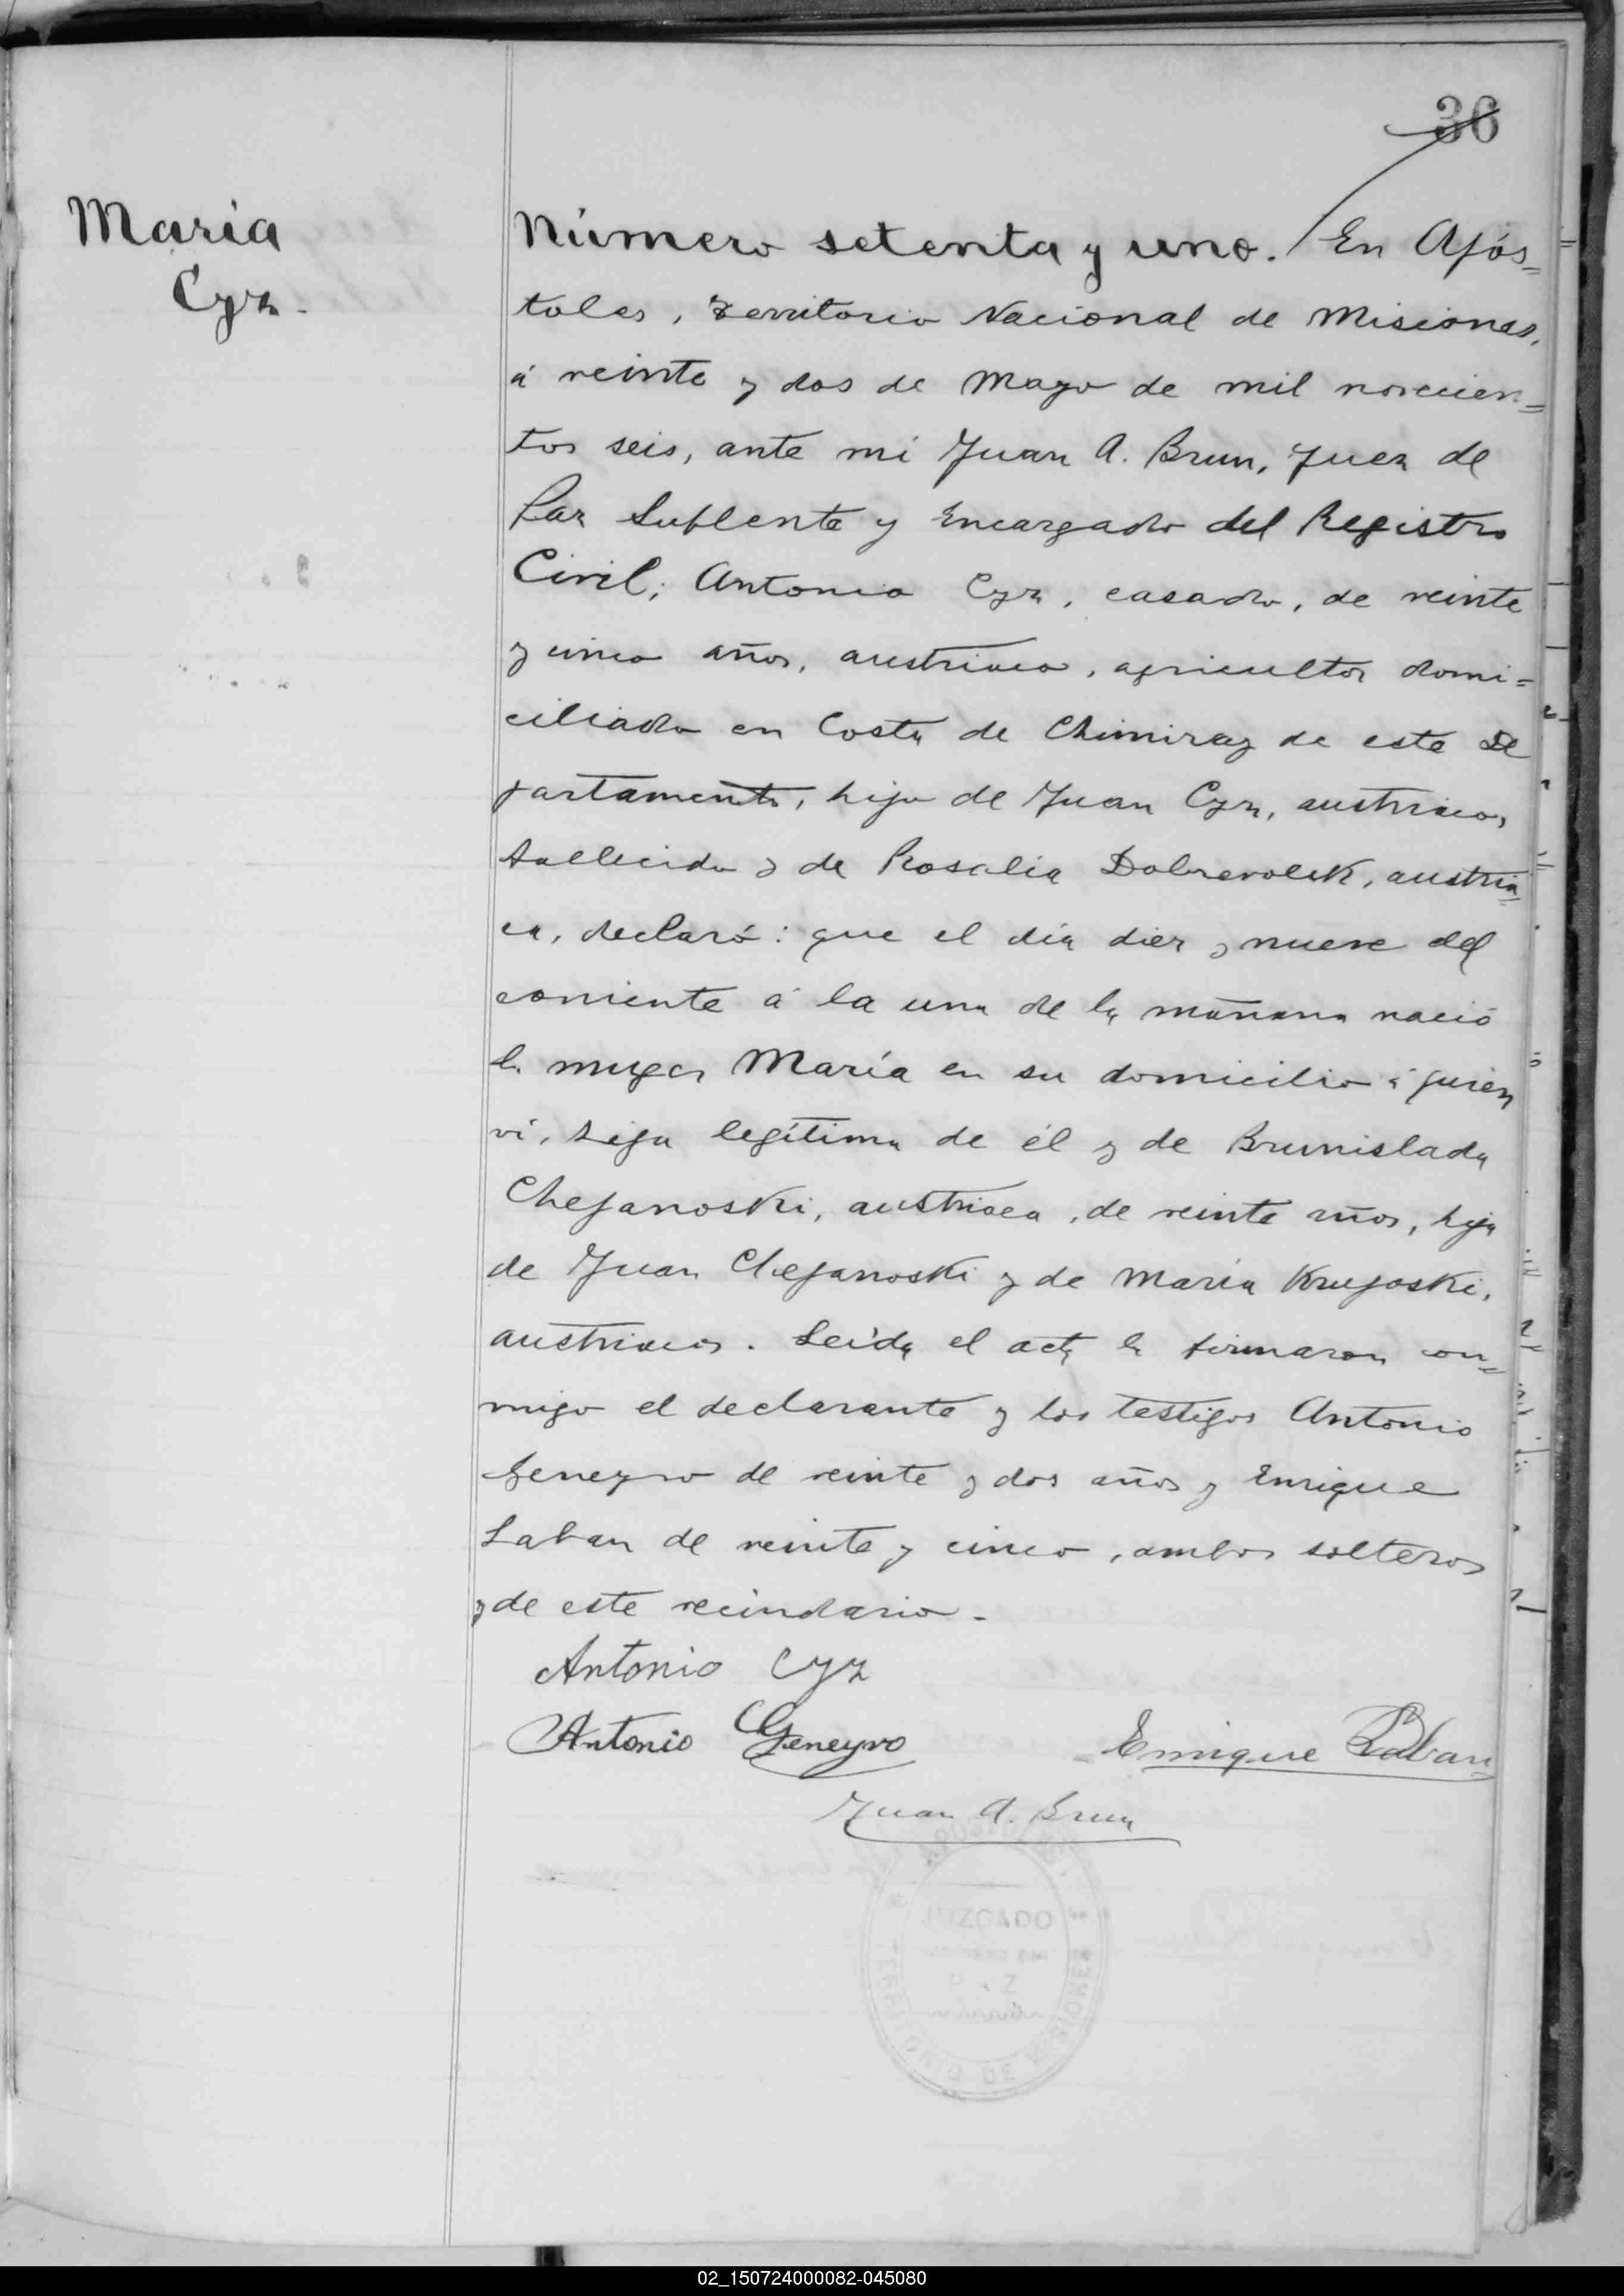 36
Maria
Cyz.
Número setenta y uno. / En Após=
toles, Territorio Nacional de Misiones,
á veinte y dos de Mayo de mil novecien=
tos seis, ante mí Juan A. Brun, Juez de
Paz Suplente y Encargado del Registro
Civil; Antonio Cyz, casado, de veinte
y cinco años, austriaco, agricultor domi=
ciliado en Costa de Chimiray de este De
partamento, hijo de Juan Cyz, austriaco,
fallecido y de Rosalia Dobrevolek, austria=
ca, declaró: que el día diez y nueve del
corriente á la una de la mañana nació
la muger María en su domicilio á quien
ví, hija legítima de él y de Brunislada
Chepanoski, austriaca, de veinte años, hija
de Juan Chepanoski y de María Kruposki,
austriacos. Leida el acta la firmaron con=
migo el declarante y los testigos Antonio
Geneyro de veinte y dos años y Enrique
Laban de veinte y cinco, ambos solteros
y de este vecindario.
Antonio Cyz
Antonio Geneyro
Enrique Laban
Juan A. Brun
JUZGADO
DE
PAZ
TERRITORIO DE MISIONES
02_150724000082-045080